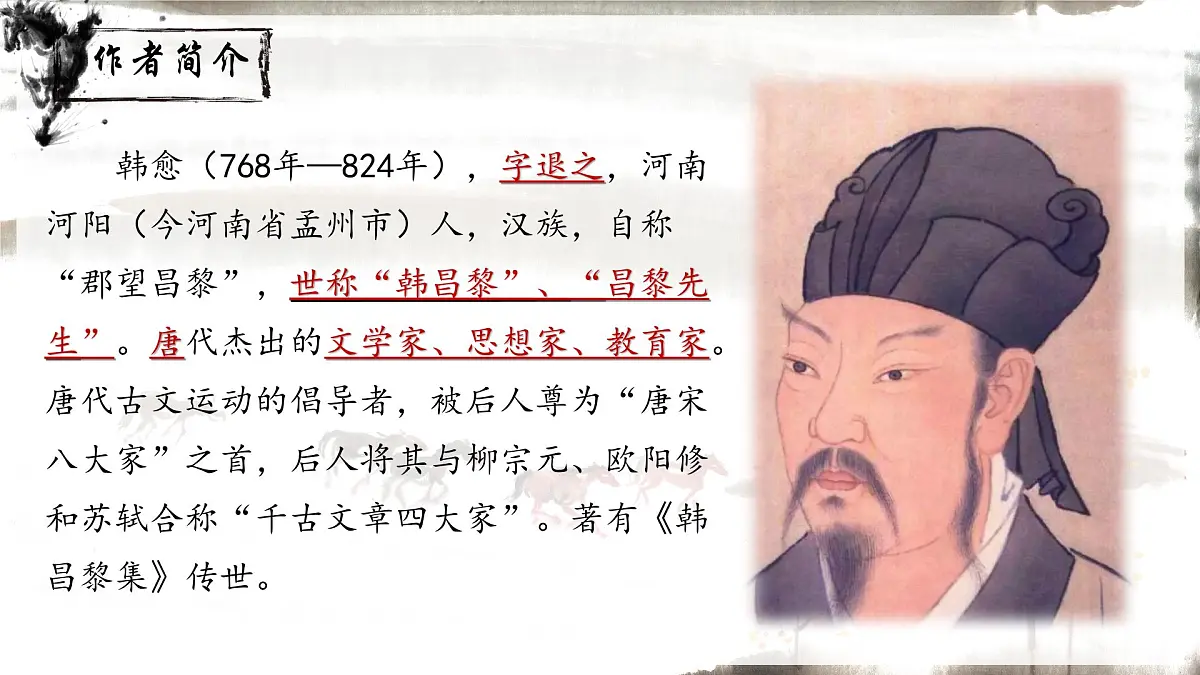 作者简介
韩愈（768年—824年），字退之，河南
河阳（今河南省孟州市）人，汉族，自称
“郡望昌黎”，世称“韩昌黎”、“昌黎先
生”。唐代杰出的文学家、思想家、教育家。
唐代古文运动的倡导者，被后人尊为“唐宋
八大家”之首，后人将其与柳宗元、欧阳修
和苏轼合称“千古文章四大家”。著有《韩
昌黎集》传世。